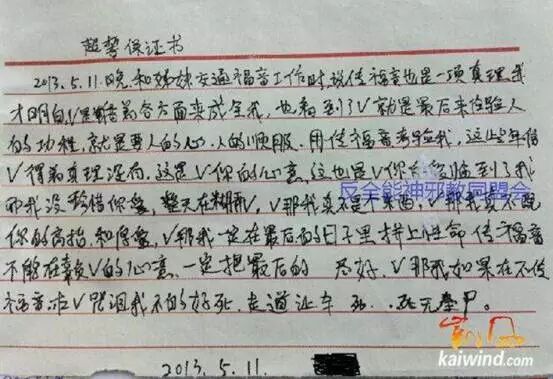 起誓保证书
2013.5.11.晚,和姊妹交通福音工作时,说传福音也是一项真理,我
才明白,V是借着各方面来成全我,也看到了V就是最后来检验人
的功程,就是要人的心,人的顺服,用传福音考验我,这些年信
V得着真理没有,这是V你的心意,这也是V你 临到了我
而我没珍惜你爱,整天在糊弄V,V那我真不是个东西,V那我真不配
你的高抬,和你爱,V那我一定在最后的日子里拼上性命传福音
不能在辜负V的心意,一定把最后的 尽好,V那我如果在不传
福音,求V咒诅我不的好死,走道让车
反全能神邪教同盟会
2013.5.11.
凯风
kaiwind.com